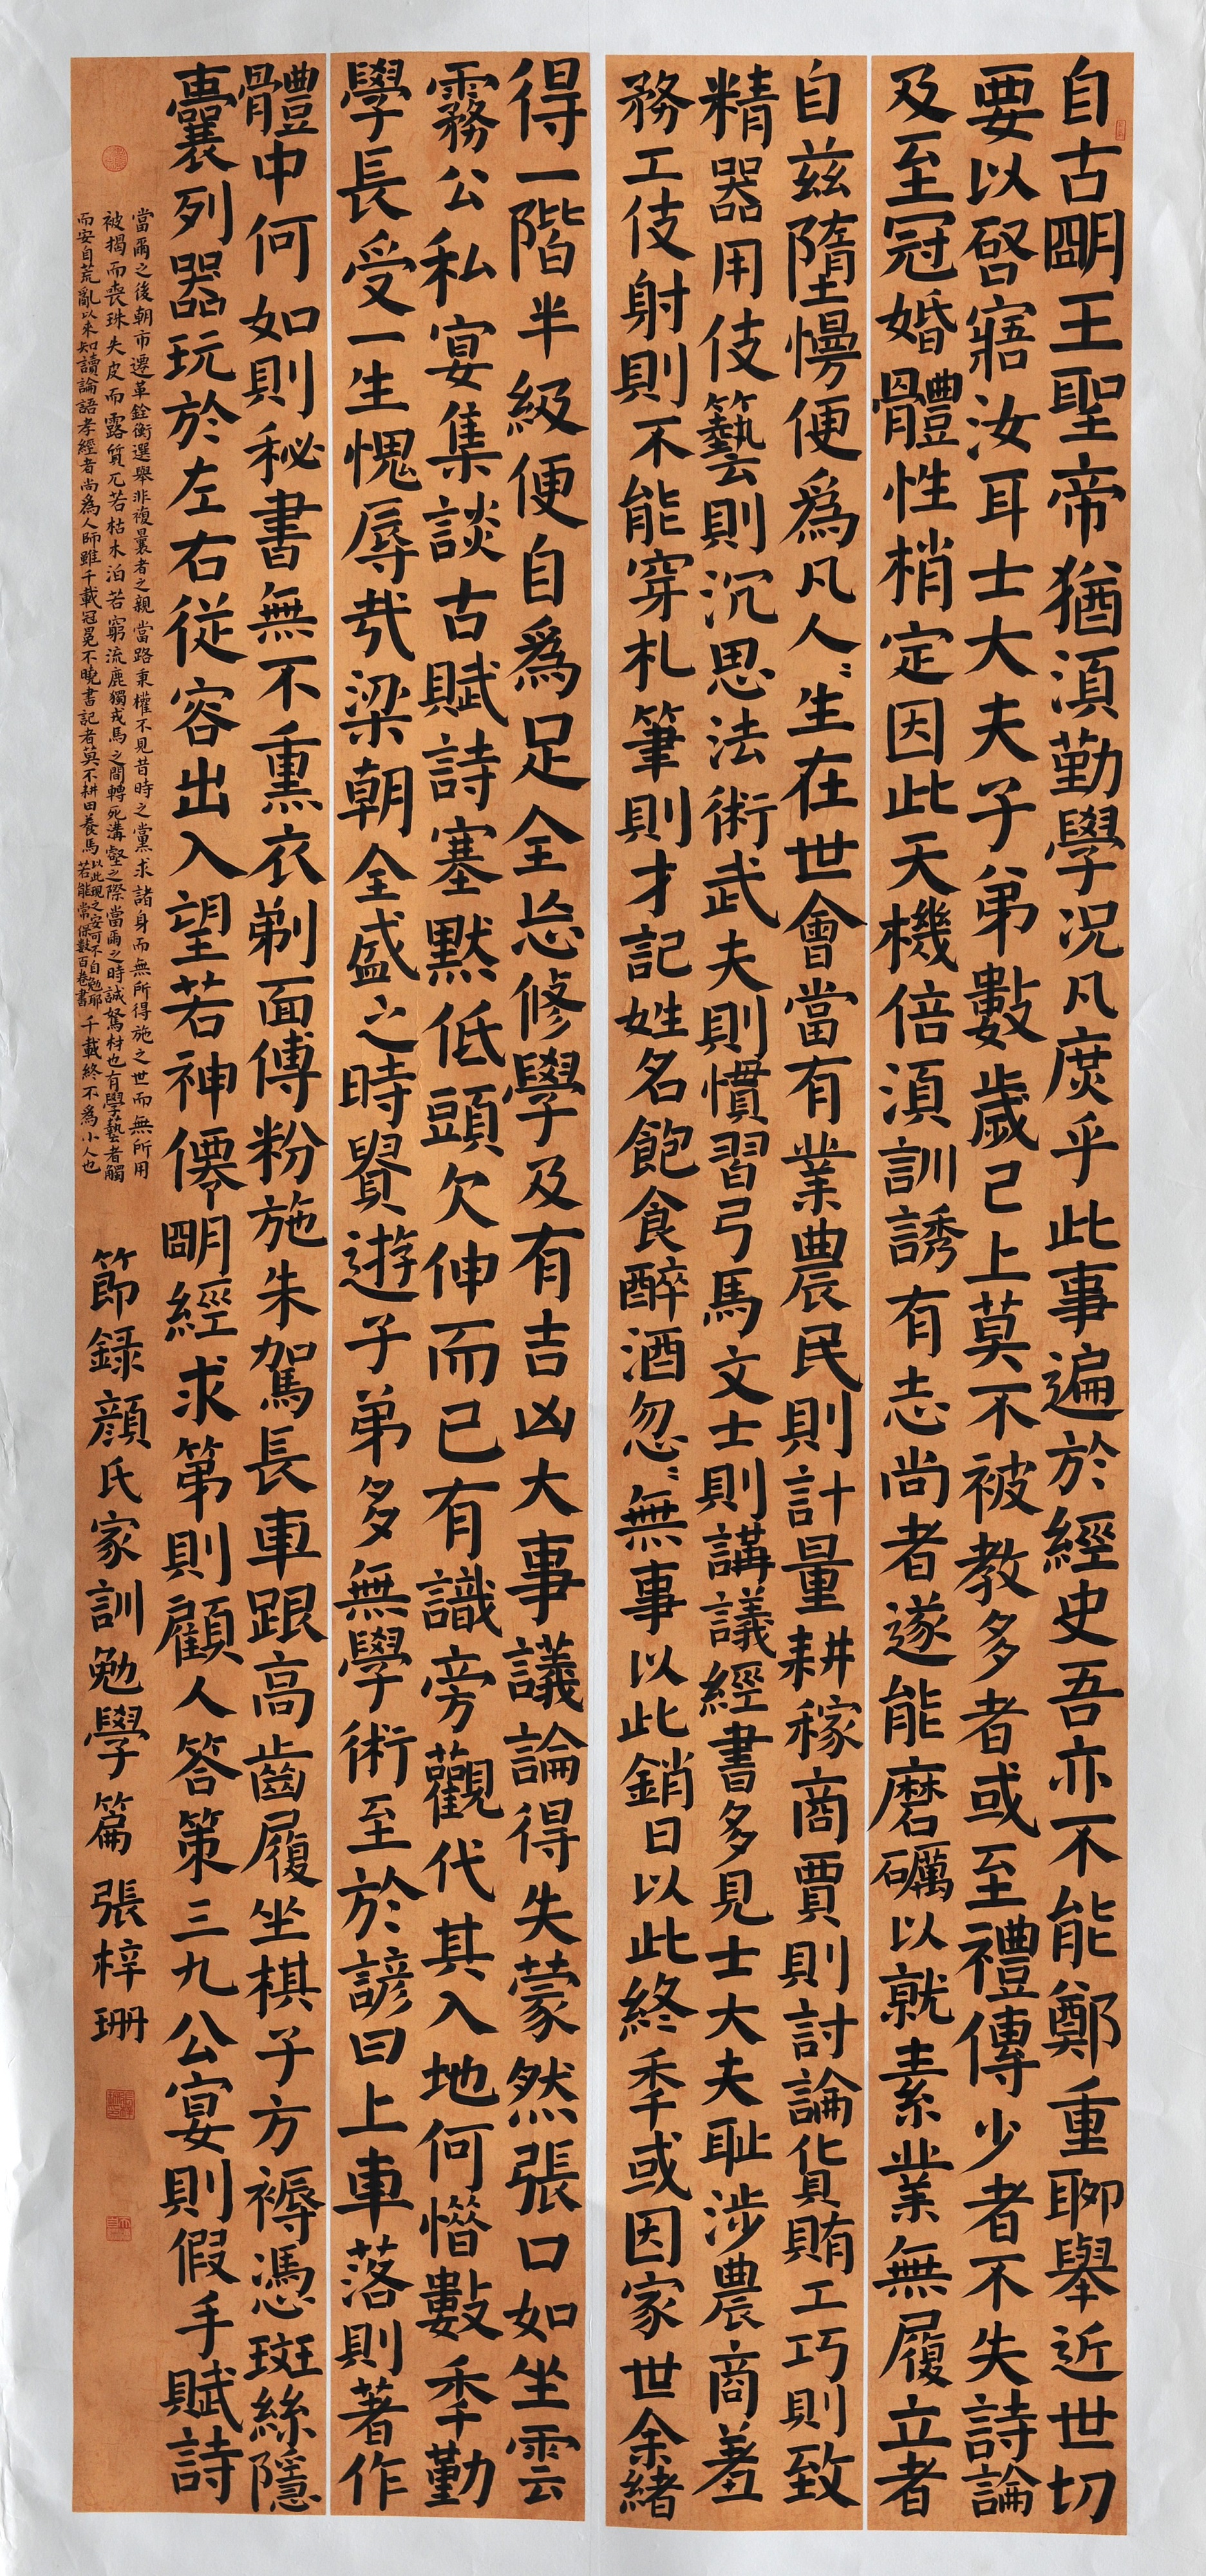 自古明王聖帝猶湏勤學況凡庶乎此事遍於經史吾亦不能鄭重聊舉近世切
要以啓寤汝耳士大夫子弟數歲已上莫不被教多者或至禮傳少者不失詩論
及至冠婚體性梢定因此天機倍湏訓誘有志尚者遂能磨礪以就素業無履立者
自茲墮慢便爲凡人〻生在世會當有業農民則計量耕稼商賈則討論貨賄工巧則致
精器用伎藝則沉思法術武夫則慣習弓馬文士則講議經書多見士大夫恥涉農商羞
務工伎射則不能穿札筆則才記姓名飽食醉酒忽〻無事以此銷日以此終秊或因家世余緒
得一階半級便自爲足全忘修學及有吉凶大事議論得失蒙然張口如坐雲
霧公私宴集談古賦詩塞默低頭欠伸而已有識旁觀代其入地何惜數秊勤
學長受一生愧辱哉梁朝全盛之時貴遊子弟多無學術至於諺曰上車落則著作
體中何如則秘書無不熏衣剃面傅粉施朱駕長車跟高齒履坐棋子方褥憑斑絲隱
囊列器玩於左右從容出入望若神僊明經求第則顧人答策三九公宴則假手賦詩
當爾之後朝市遷革銓衡選舉非複曩者之親當路秉權不見昔時之黨求諸身而無所得施之世而無所用
被揭而喪珠失皮而露質兀若枯木泊若窮流鹿獨戎馬之間轉死溝壑之際當爾之時誠駑材也有學藝者觸
而安自荒亂以來知讀論語孝經者尚爲人師雖千載冠冕不曉書記者莫不耕田養馬以此現之安可不自勉耶若能常保數百卷書千載終不爲小人也
節録顏氏家訓勉學篇 張梓珊